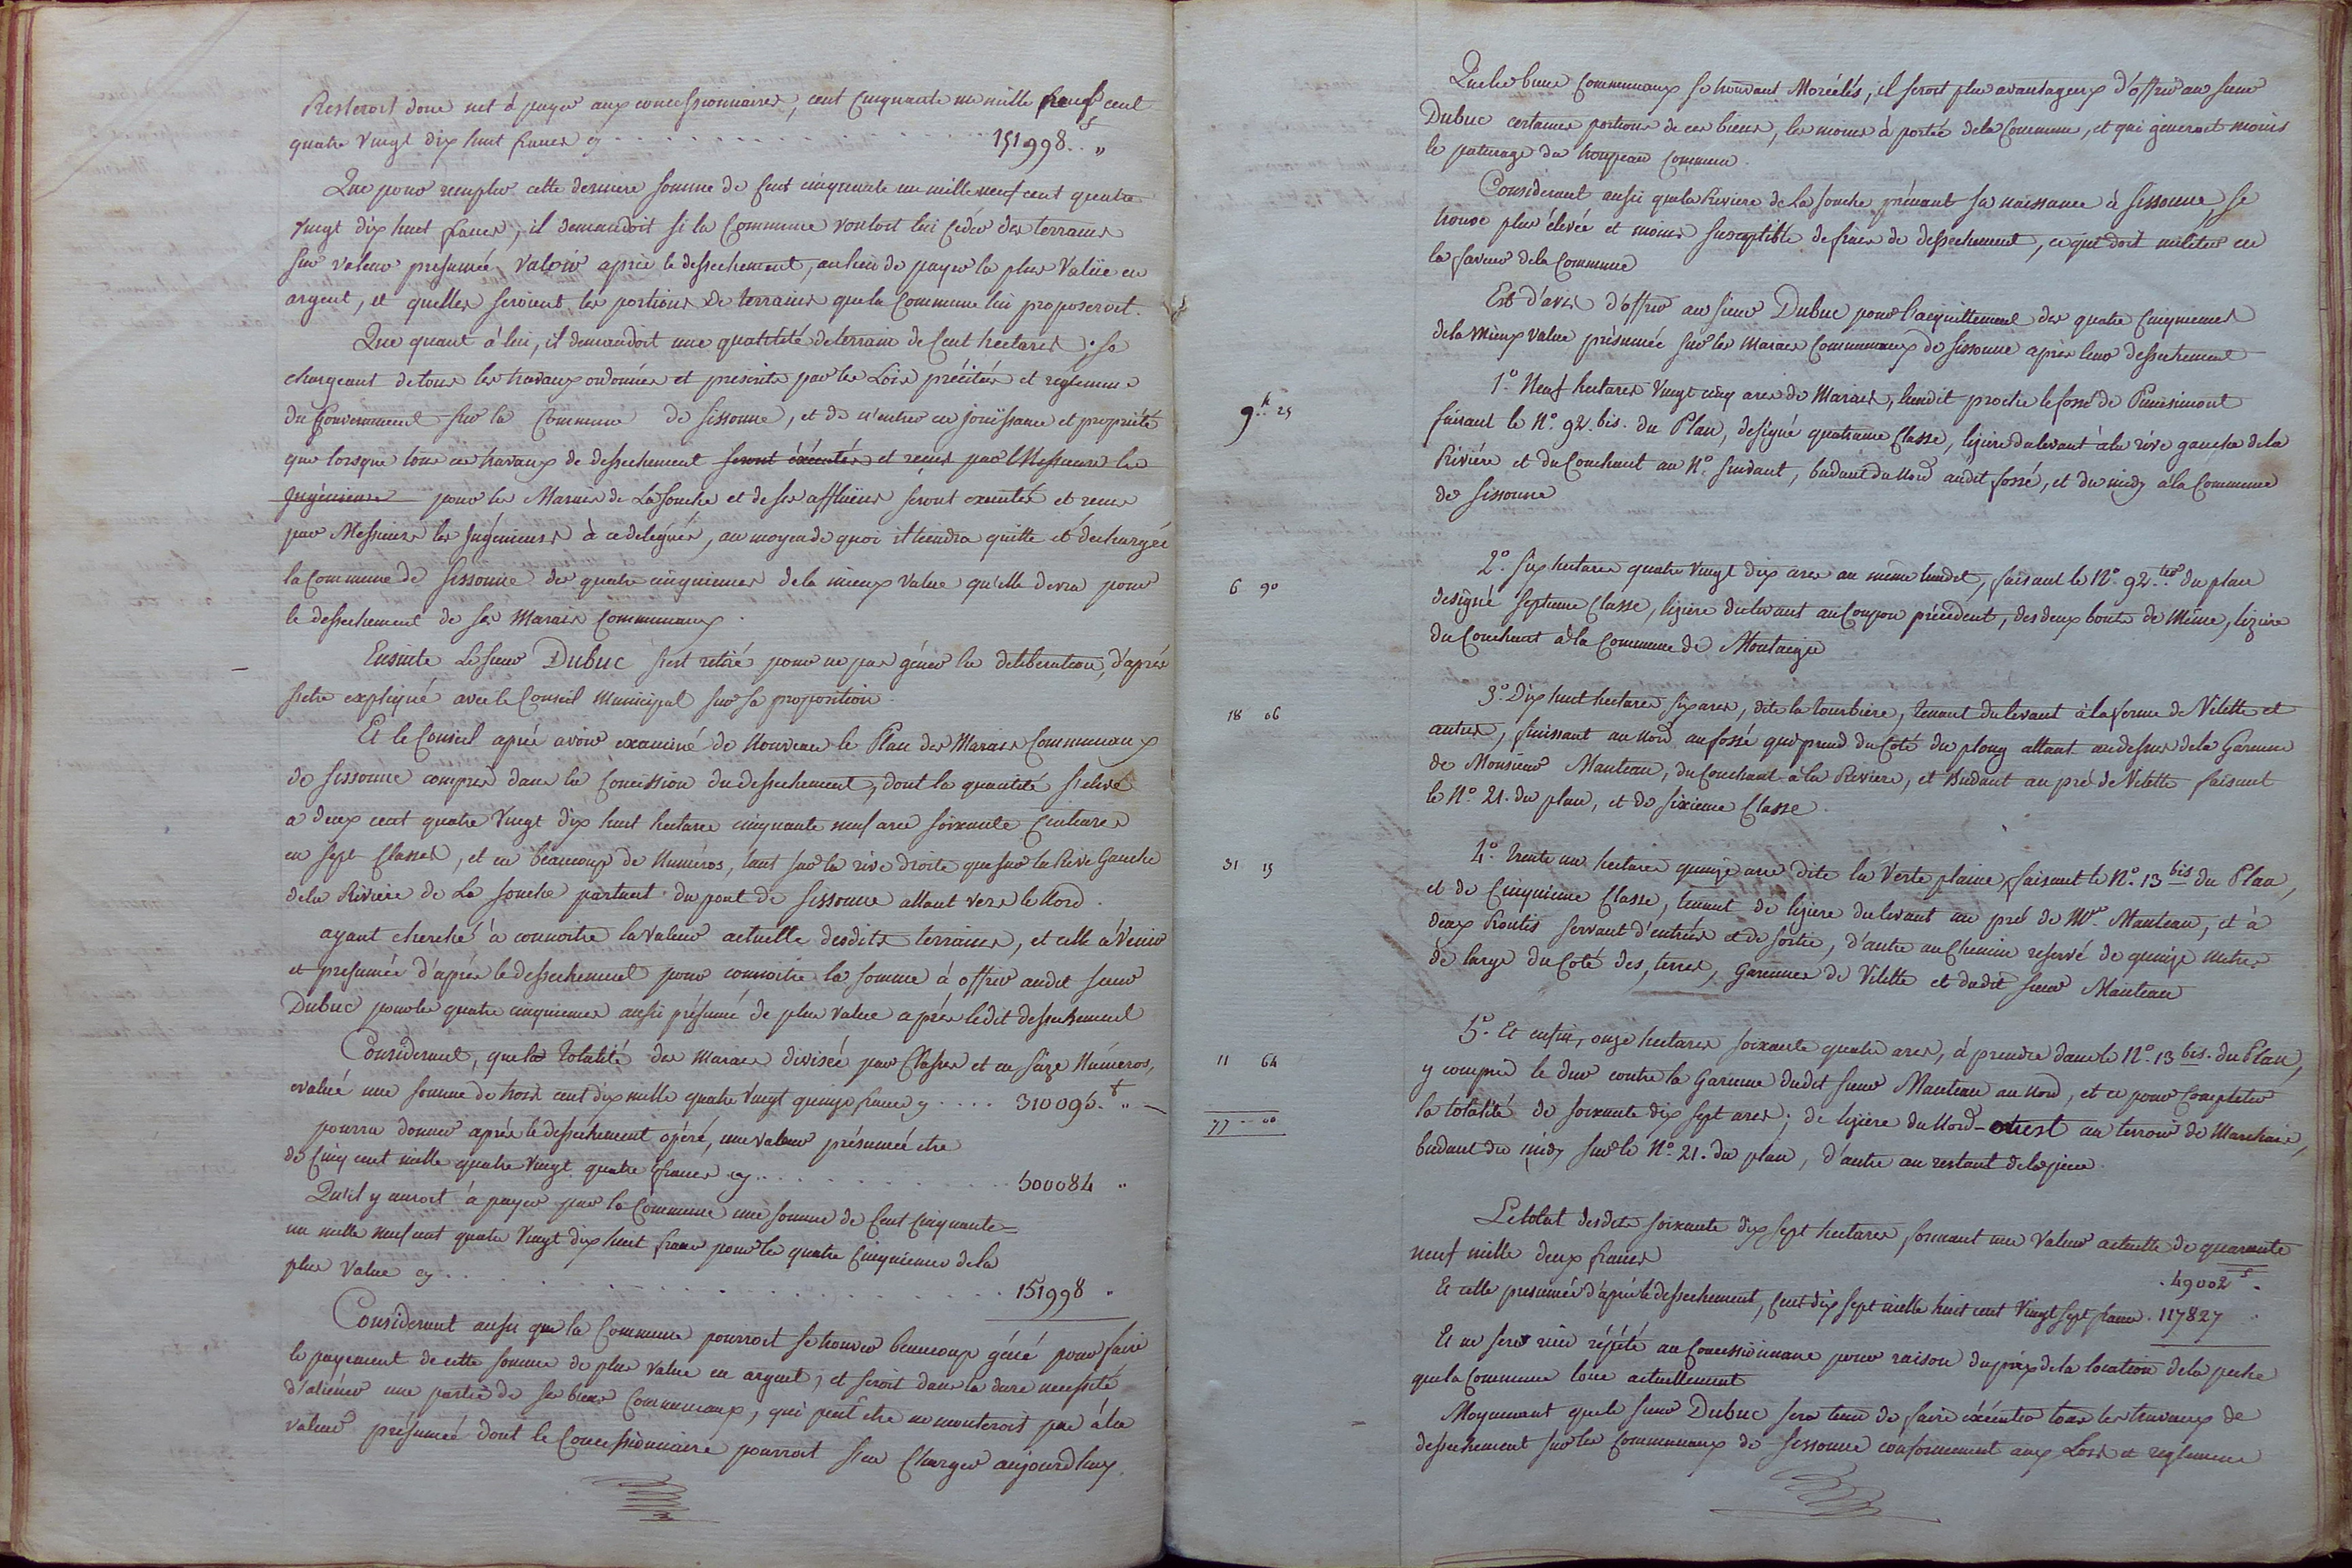 Resteroit donc net à payer aux concessionnaires, cent cinquante un mille neuf cent
quatre vingt dix huit francs cy . . . . . . . . . . 151998 f. "
Que pour remplir cette derniere somme de cent cinquante un mille neuf cent quatre
vingt dix huit francs, il demandoit si la Commune vouloit lui céder des terrains
sur valeur presumée valoir après le dessechement, au lieu de payer la plus Valüe en
argent, et quelles seroient les portions de terrains que la Commune lui proposeroit.
Que quant à lui, il demandoit une quatitité de terrain de Cent hectares, se
chargeant de tous les travaux ordonnés et prescrits par les Lois précitées et reglemens
du Gouvernement sur la Commune de Sissonne, et de n'entrer en jouissance et propriété
que lorsque tous ces travaux de dessechement seront éxécutés et reçus par Messieurs les
Ingénieurs pour les Marais de La Souche et de ses affluens seront executés et recus
par Messieurs les Ingénieurs à ce delégués, au moyen de quoi il tiendra quitte et déchargée
la Commune de Sissonne des quatre cinquiemes de la mieux value qu'elle devra pour
le dessechement de ses Marais Communaux.
Ensuite Le Sieur Dubuc s'est retiré pour ne pas géner la deliberation, d'après
s'etre expliqué avec le Conseil Municipal sur sa proposition
Et le Conseil après avoir examiné de Nouveau le Plan des Marais Communaux
de Sissonne compris dans la Concession du dessechement, dont la quantité s'eleve
a deux cent quatre Vingt dix huit hectares cinquante neuf ares soixante Centiares
en sept Classes, et en beaucoup de Numéros, tant sur la rive droite que sur la Rive Gauche
de la Riviere de La Souche partant du pont de Sissonne allant vers le Nord.
ayant cherché à connoitre la valeur actuelle desdits terrains, et celle à Venir
et presumée d'après le dessechement pour connoitre la somme à offrir audit sieur
Dubuc pour les quatre cinquiemes aussi présumé de plus value après ledit dessechement
Considerant, que la totalité des marais divisée par Classes et en seize Numéros,
evalué une somme de trois cent dix mille quatre Vingt quinze francs cy . . . . 310095 f. " —
pourra donner après le dessechement opéré, une valeur présumée etre
de Cinq cent mille quatre Vingt quatre francs cy . . . . . . . . 500084 "
Qu'il y auroit à payer par la Commune une somme de Cent Cinquante=
un mille neuf cent quatre Vingt dix huit francs pour les quatre Cinquiemes de la
plus Value cy . . . . . . . . . . . . 151998 "
Considerant aussi que la Commune pourroit se trouver beaucoup géné pour faire
le payement de cette somme de plus value en argent, et seroit dans la dure necessité
d'aliéner une partie de ses biens Communaux, qui peut etre ne monteroit pas à la
valeur présumée dont le Concessionnaire pourroit s'en Charger aujourd'huy.
Que les biens Communaux se trouvant Morcélés, il seroit plus avantageux d'offrir au sieur
Dubuc certaines portions de ces biens, les moins à portée de la Commune, et qui géneroit moins
le paturage du troupeau Commun.
Considerant aussi que la Riviere de La Souche prénant sa naissance à Sissonne, se
trouve plus élevée et moins susceptible de frais de dessechement, ce qui doit militer en
la faveur de la Commune
Est d'avis d'offrir au sieur Dubuc pour l'acquittement des quatre Cinquiemes
de la Mieux value présumée sur les Marais Communaux de Sissonne après leur dessechement
9 h 25
1.° Neuf hectares Vingt cinq ares de Marais, lieudit proche le fossé de
faisant le N.° 92. bis. du Plan, designé quatrieme Classe, liziere du levant à la rive gauche de la
Riviére et du Couchant au N.° suivant, budant du Nord audit fossé, et du midy à la Commune
de Sissonne
6 90
2.° Six hectares quatre Vingt dix ares au même lieudit, faisant le N.° 92. ter du plan
designé Septieme Classe, liziere du levant au Coupon précédent, des deux bouts de Même, liziere
du Couchant à la Commune de Montaigu
18 06
3.° Dix huit hectares six ares, dite la tourbiere, tenant du levant à la ferme de Vilette et
autres, finissant au Nord au fossé qui prend du Coté du plong allant au dessus de la Garenne
de Monsieur Manteau, du Couchant à la Riviere, et Budant au pré de Vilette faisant
le N.° 21. du plan, et de sixieme Classe.
31 15
4.° Trente un hectares quinze ares dite la Verte plaine, faisant le N.° 13 bis du Plan,
et de Cinquieme Classe, tenant de liziere du levant au pré de Mr. Manteau, et à
deux Routis servant d'entrée et de sortie, d'autre au Chemin reservé de quinze metres
de large du Coté des terres, Garennes de Vilette et dudit sieur Manteau
11 64
5.° Et enfin, onze hectares soixante quatre ares, à prendre dans le N.° 13 bis. du Plan,
y compris le dur contre la Garenne dudit sieur Manteau au Nord, et ce pour Completer
77 " 00
la totalité de soixante dix sept ares; de liziere du Nord-ouest au terroir de Marchais,
budant du midy sur le N.° 21. du plan, d'autre au restant de la piece.
Le total desdits soixante dix sept hectares, formant une Valeur actuelle de quarante
neuf mille deux francs . 49002 f.
Et celle presumée d'après le dessechement, Cent dix sept mille huit cent Vingt sept francs . 117827
Et ne sera rien répété au Concessionnaire pour raison du prix de la location de la peche
que la Commune loue actuellement
Moyennant que le sieur Dubuc sera tenu de faire éxécuter tous les travaux de
dessechement sur les Communaux de Sissonne conformement aux Lois et reglemens